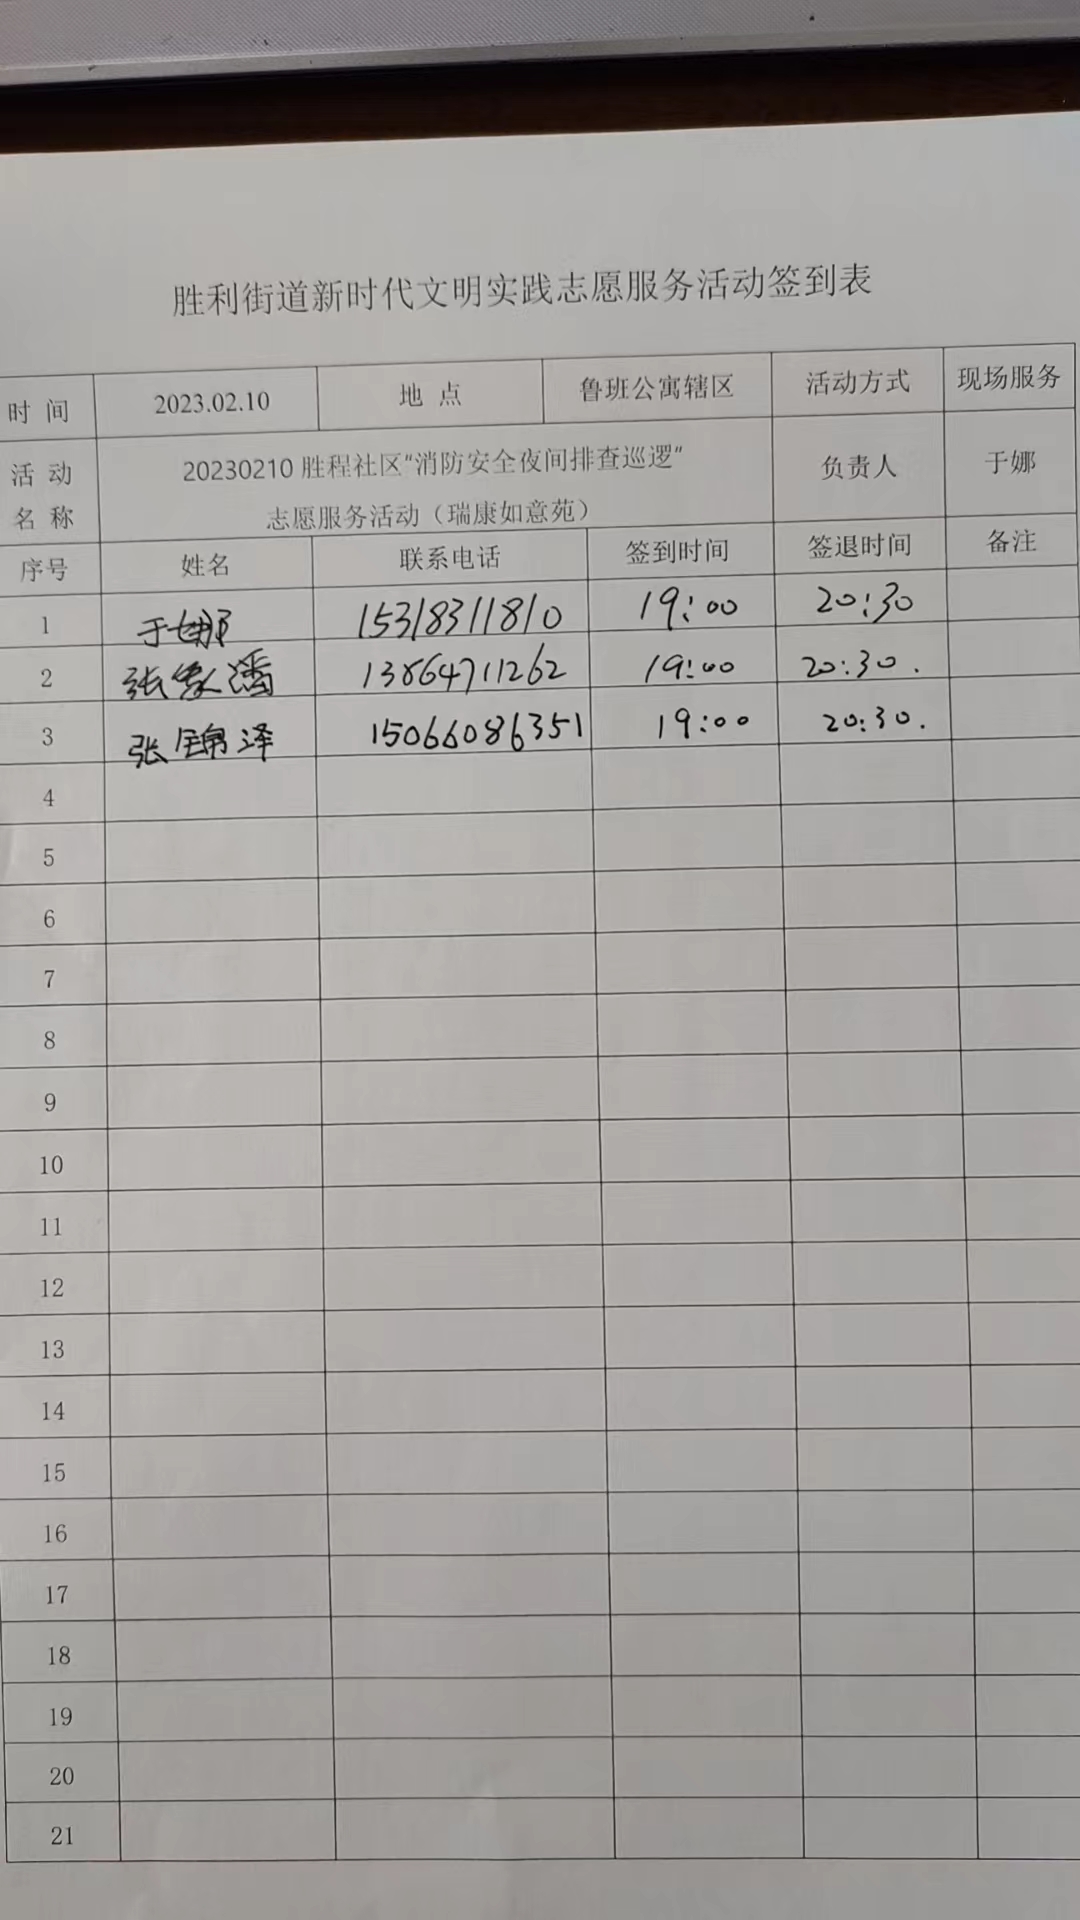 胜利街道新时代文明实践志愿服务活动签到表
时 间 2023.02.10 地 点 鲁班公寓辖区 活动方式 现场服务
活 动 名 称 20230210 胜程社区“消防安全夜间排查巡逻” 负责人 于娜
志愿服务活动（瑞康如意苑）
序号 姓名 联系电话 签到时间 签退时间 备注
1 于娜 15318311810 19:00 20:30
2 张 潘 13864711262 19:00 20:30.
3 张锦泽 15066086351 19:00 20:30.
4
5
6
7
8
9
10
11
12
13
14
15
16
17
18
19
20
21